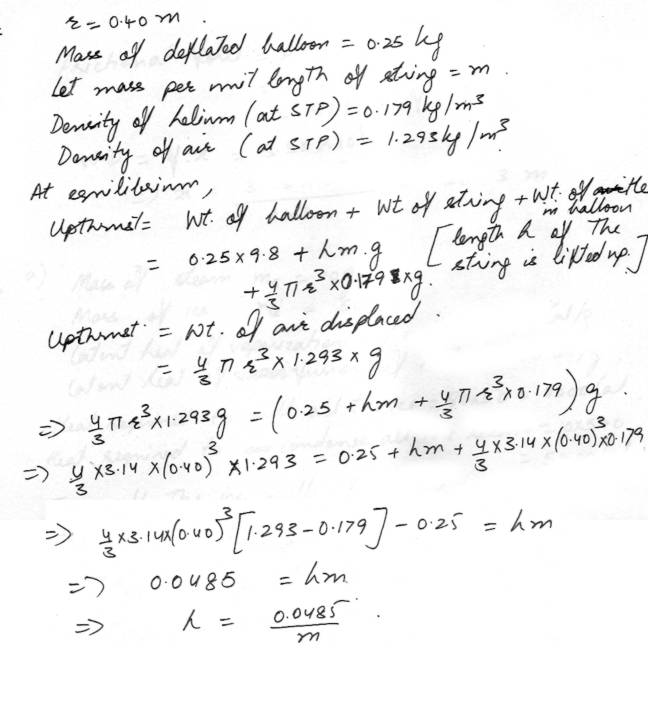 r = 0.40 m.
Mass of deflated balloon = 0.25 kg
Let mass per unit length of string = m.
Density of helium (at STP) = 0.179 kg/m³
Density of air (at STP) = 1.293 kg/m³
At equilibrium,
Upthrust = Wt. of balloon + Wt of string + Wt. of the in balloon
= 0.25 × 9.8 + hm.g [length h of the string is lifted up.]
+ 4/3 π r³ × 0.179 × g.
Upthrust = Wt. of air displaced.
= 4/3 π r³ × 1.293 × g
=> 4/3 π r³ × 1.293 g = (0.25 + hm + 4/3 π r³ × 0.179) g.
=> 4/3 × 3.14 × (0.40)³ × 1.293 = 0.25 + hm + 4/3 × 3.14 × (0.40)³ × 0.179
=> 4/3 × 3.14 × (0.40)³ [1.293 - 0.179] - 0.25 = hm
=> 0.0485 = hm
=> h = 0.0485/m.